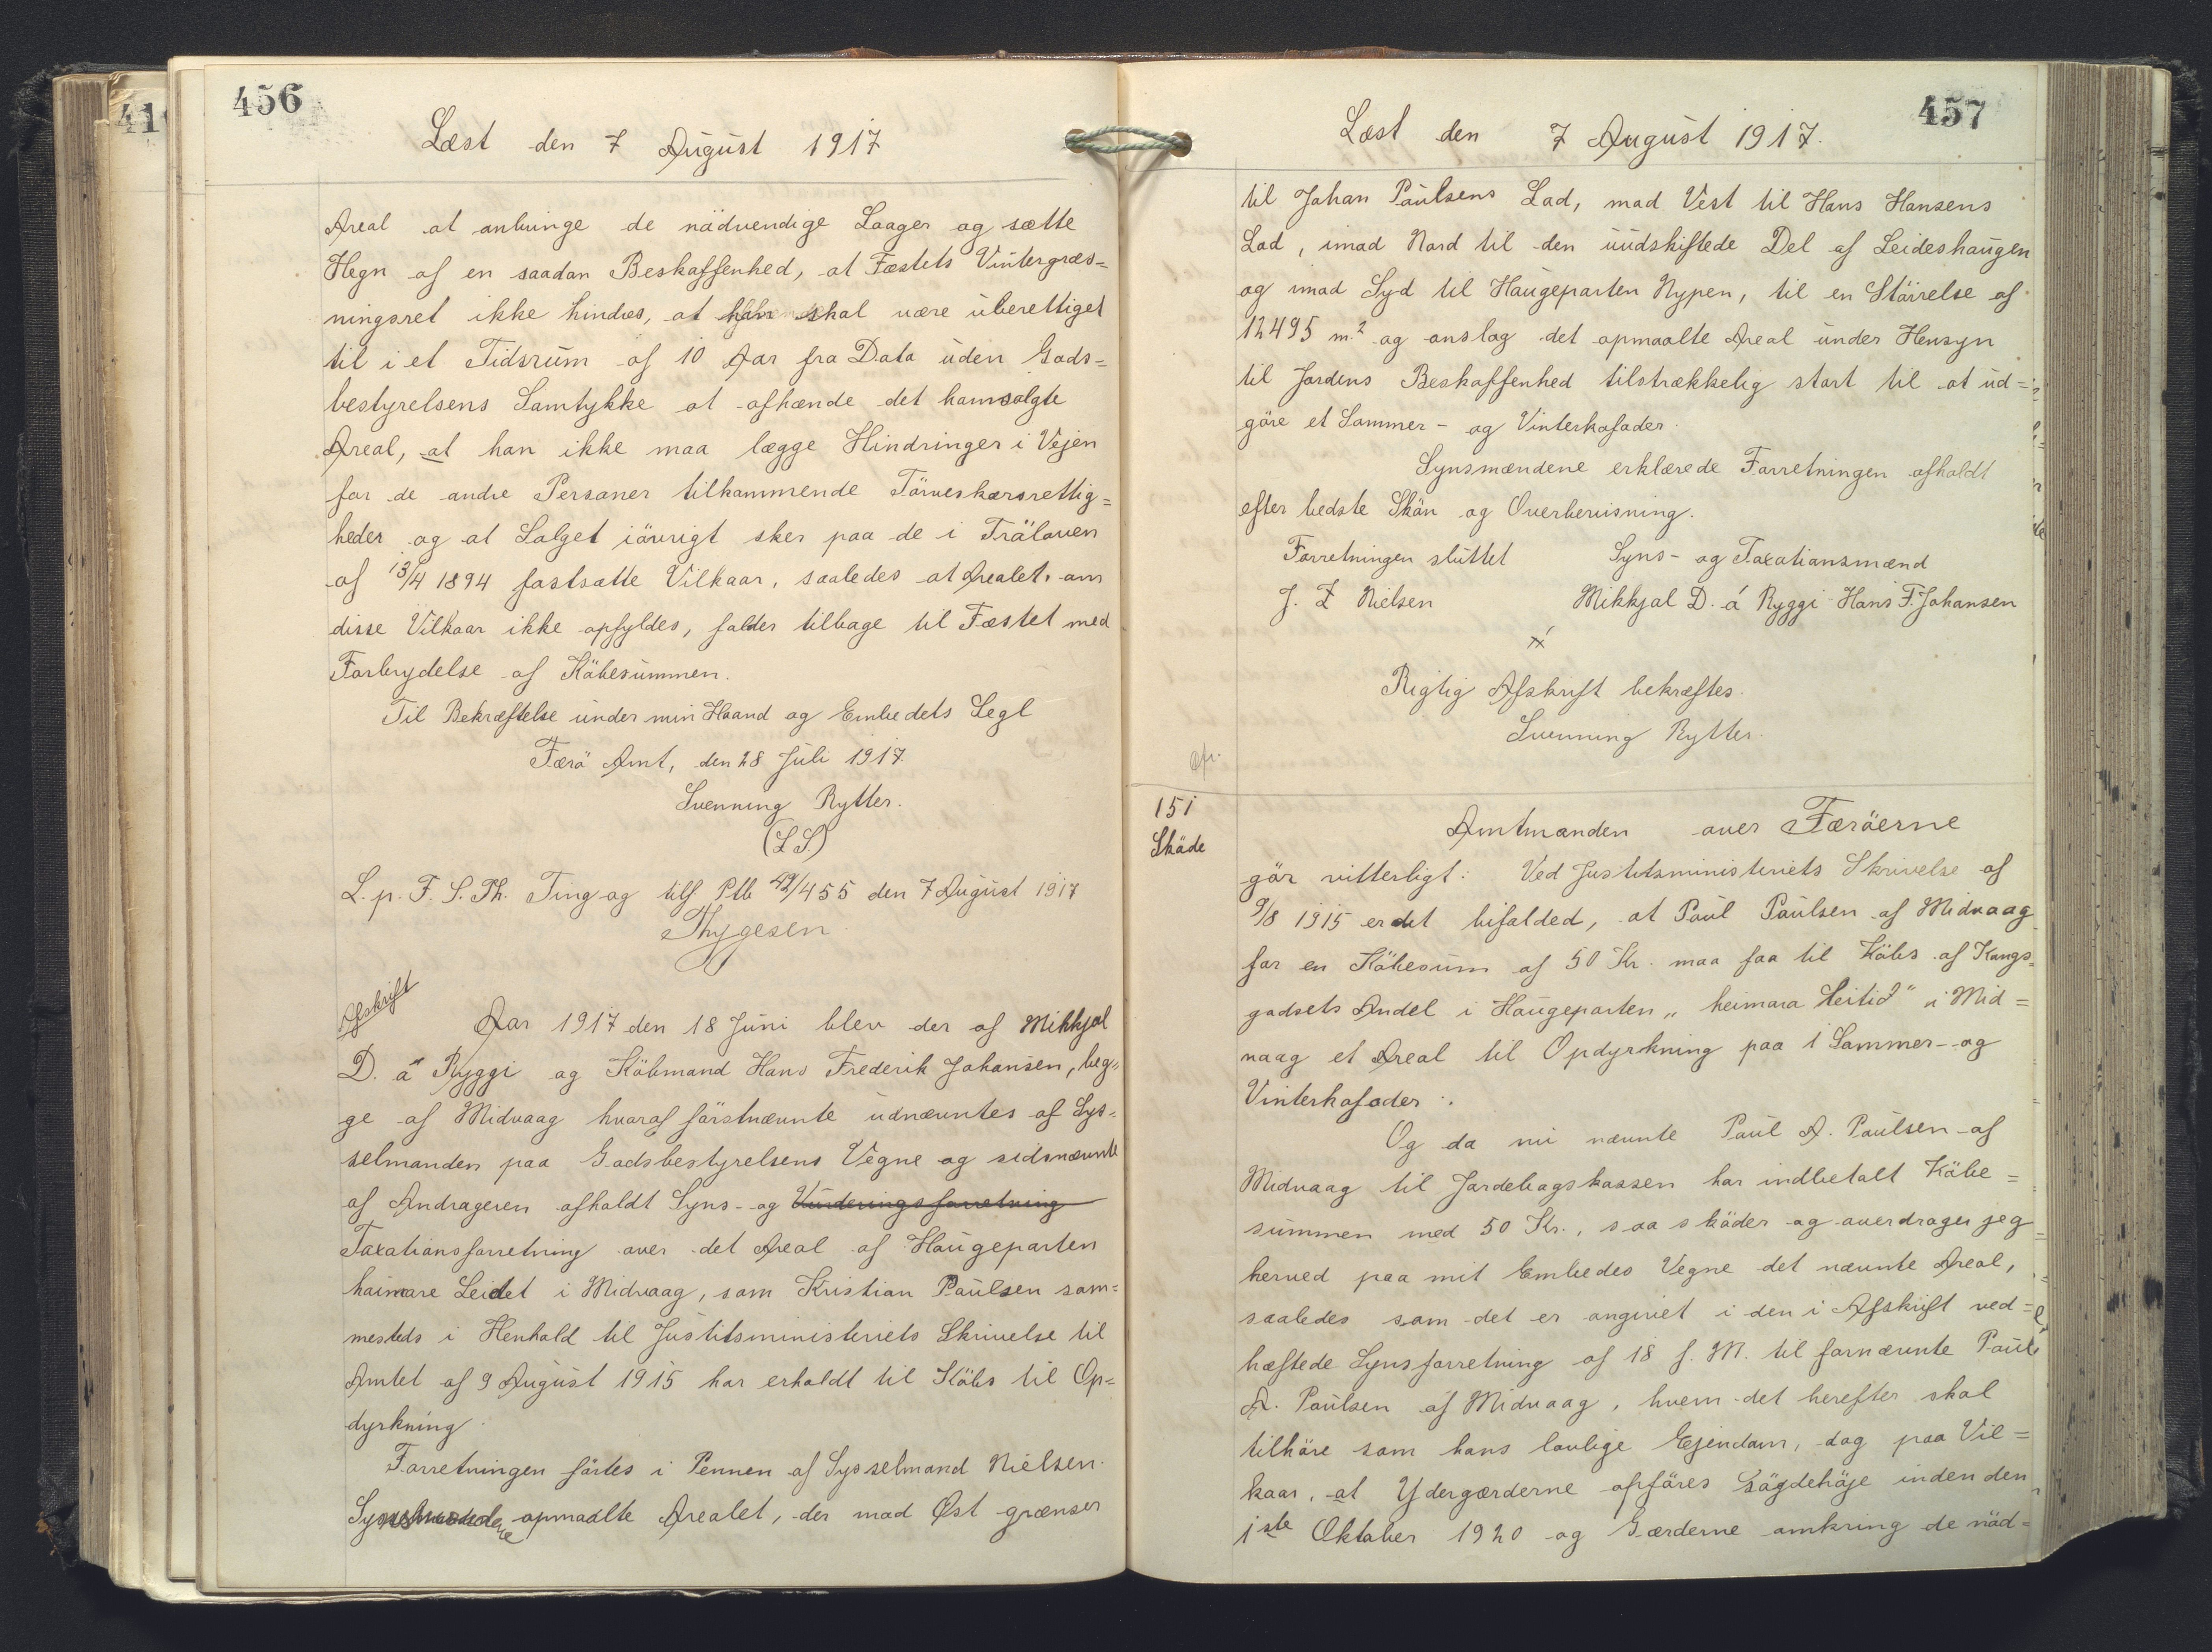 456
Læst den 7 August 1917
Areal at anbringe de nödvendige Laager og sætte
Hegn af en saadan Beskaffenhed, at Fæstets Vintergræs=
ningsret ikke hindres, at han skal være uberettiget
til i et Tidsrum af 10 Aar fra Dato uden Gods=
bestyrelsens Samtykke at afhænde det hamsolgte
Areal, at han ikke maa lægge Hindringer i Vejen
for de andre Personer tilkommende Törveskærsrettig=
heder og at Salget iövrigt sker paa de i Träloven
af 13/4 1894 fastsatte Vilkaar, saaledes at Arealet, om
disse Vilkaar ikke opfyldes, falder tilbage til Fæstet med
Forbrydelse af Köbesummen.
Til Bekræftelse under min Haand og Embedets Segl
Færö Amt, den 28 Juli 1917.
Svenning Rytter.
(L.S.)
L. p. F. S. Th. Ting og tilf Ptb 49/455 den 7 August 1917
Thygesen
Afskrift
Aar 1917 den 18 Juni blev der af Mikkjal
D. á Ryggi og Köbmand Hans Frederik Johansen, beg=
ge af Midvaag hvoraf förstnævnte udnævntes af Sys=
selmanden paa Godsbestyrelsens Vegne og sidsnævnte
af Andrageren afholdt Syns- og Vurderingsforretning
Taxationsforretning over det Areal af Haugeparten
haimare Leidet i Midvaag, som Kristian Paulsen sam=
mesteds i Henhold til Justitsministeriets Skrivelse til
Amtet af 9 August 1915 har erholdt til Köbs til Op=
dyrkning.
Forretningen förtes i Pennen af Sysselmand Nielsen.
Synsmændene opmaalte Arealet, der mod Øst grænser
457
Læst den 7 August 1917.
til Johan Paulsens Lod, mod Vest til Hans Hansens
Lod, imod Nord til den uudskiftede Del af Leideshaugen
og imod Syd til Haugeparten Nypen, til en Störrelse af
12495 m.² og anslog det opmaalte Areal under Hensyn
til Jordens Beskaffenhed tilstrækkelig stort til at ud=
göre et Sommer- og Vinterkofoder.
Synsmændene erklærede Forretningen afholdt
efter bedste Skön og Overbevisning.
Forretningen sluttet Syns- og Taxationsmænd
J. Z Nielsen Mikkjal D. á Ryggi Hans F. Johansen
Rigtig Afskrift bekræftes.
Svenning Rytter.
151
Sköde
Amtmanden over Færöerne
gör vitterligt: Ved Justitsministeriets Skrivelse af
9/8 1915 er det bifalded, at Poul Paulsen af Midvaag
for en Köbesum af 50 Kr. maa faa til Köbs af Kongs=
godsets Andel i Haugeparten „heimara Leitid" i Mid=
vaag et Areal til Opdyrkning paa 1 Sommer- og
Vinterkofoder.
Og da nu nævnte Paul A. Paulsen af
Midvaag til Jordebogskassen har indbetalt Köbe=
summen med 50 Kr., saa sköder og overdrager jeg
herved paa mit Embedes Vegne det nævnte Areal,
saaledes som det er angivet i den i Afskrift ved=
hæftede Synsforretning af 18 f. M. til fornævnte Paul
A. Paulsen af Midvaag, hvem det herefter skal
tilhöre som hans lovlige Ejendom, dog paa Vil=
kaar, at Ydergærderne opföres Lögdehöje inden den
1ste Oktober 1920 og Gærderne omkring de nöd=